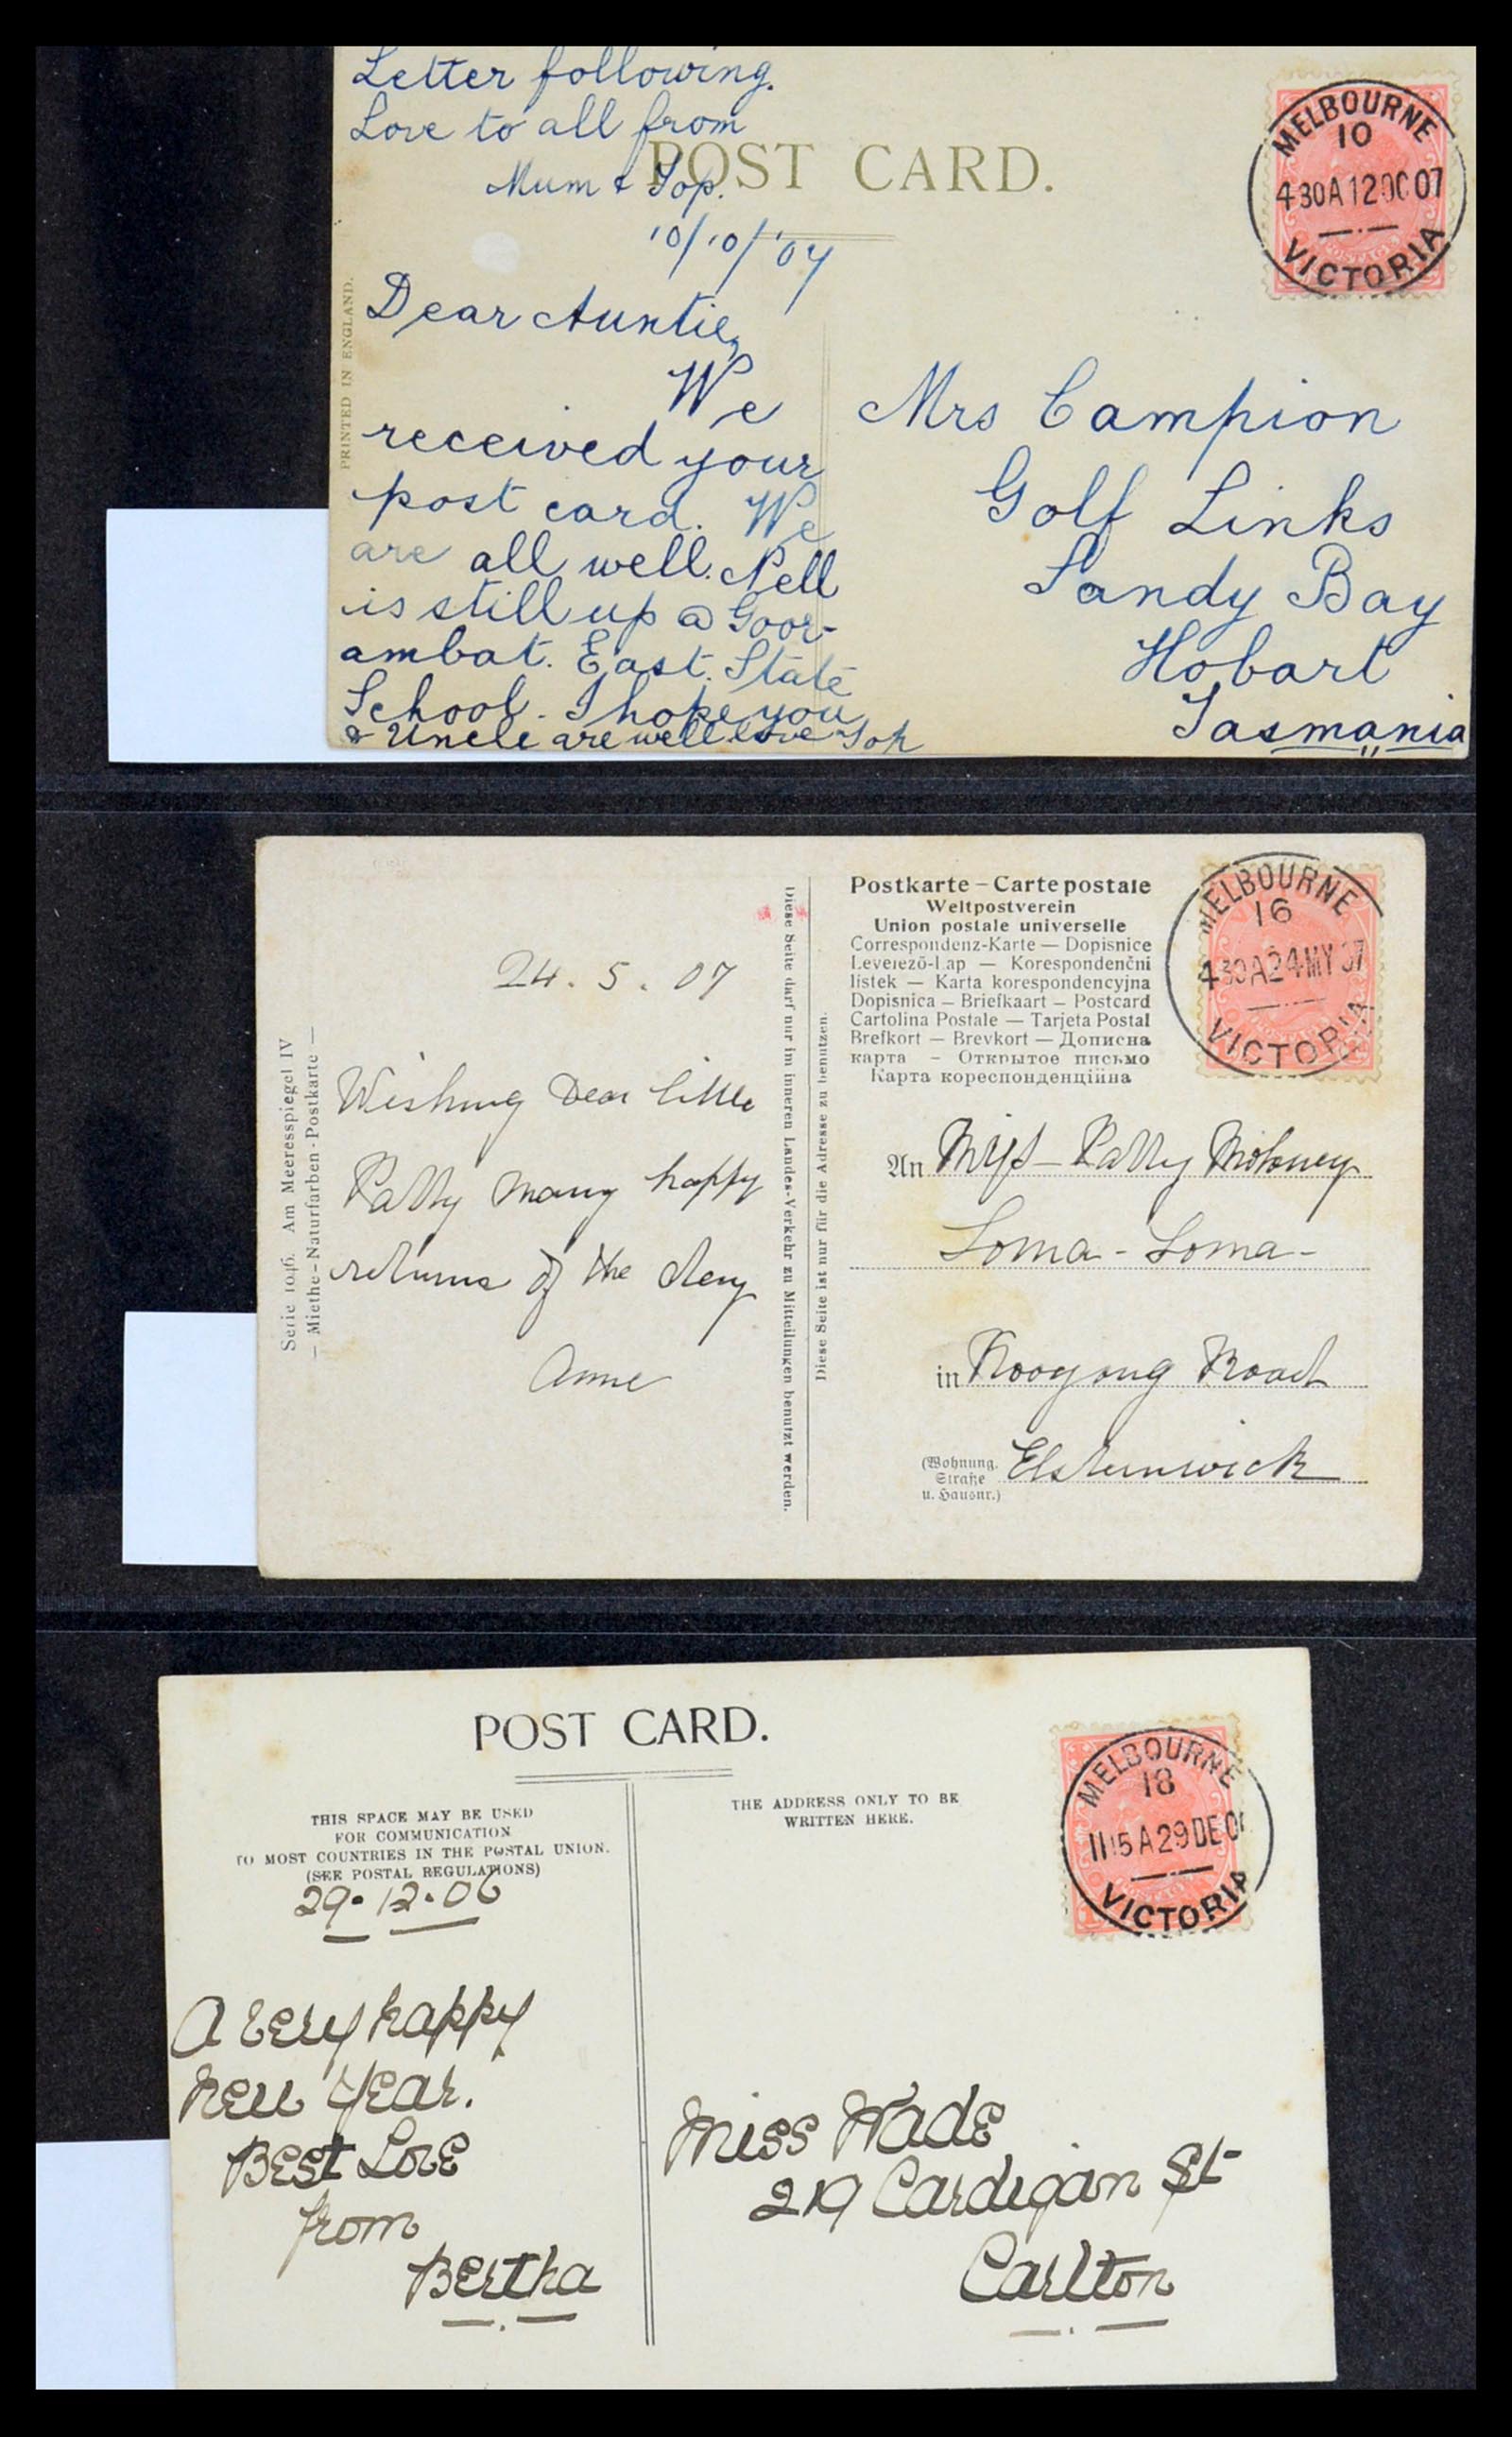 Letter following.
Love to all from
Mum &
POST CARD.
10/10/'07
PRINTED IN ENGLAND.
Dear Auntie,
We
received your
post card. We
are all well. Nell
is still up @ Goor-
ambat. East. State
School. I hope you
& Uncle are well love
MELBOURNE
10
4 30A 12 OC 07
VICTORIA
Mrs Campion
Golf Links
Sandy Bay
Hobart
Tasmania
Serie 1046. Am Meeresspiegel IV
— Miethe-Naturfarben-Postkarte —
24. 5. 07
Wishing Dear little
Patty many happy
returns of the day
Anne
Diese Seite darf nur im inneren Landes-Verkehr zu Mitteilungen benutzt werden.
Diese Seite ist nur für die Adresse zu benutzen.
Postkarte – Carte postale
Weltpostverein
Union postale universelle
Correspondenz-Karte — Dopisnice
Levelező-Lap — Korespondenční
lístek — Karta korespondencyjna
Dopisnica — Briefkaart — Postcard
Cartolina Postale — Tarjeta Postal
Brefkort — Brevkort — Дописна
карта – Открытое письмо
Карта кореспонденційна
MELBOURNE
16
4 30A 24 MY 07
VICTORIA
An Miss Patty
Loma - Loma -
in Kooyong Road
(Wohnung. Elsternwick
Straße
u. Hausnr.)
POST CARD.
THIS SPACE MAY BE USED
FOR COMMUNICATION
TO MOST COUNTRIES IN THE POSTAL UNION.
(SEE POSTAL REGULATIONS)
THE ADDRESS ONLY TO BE
WRITTEN HERE.
MELBOURNE
18
11 15 A 29 DE 0
VICTORIA
29.12.06
A very happy
New Year.
Best Love
from
Bertha
Miss Wade
219 Cardigan St
Carlton